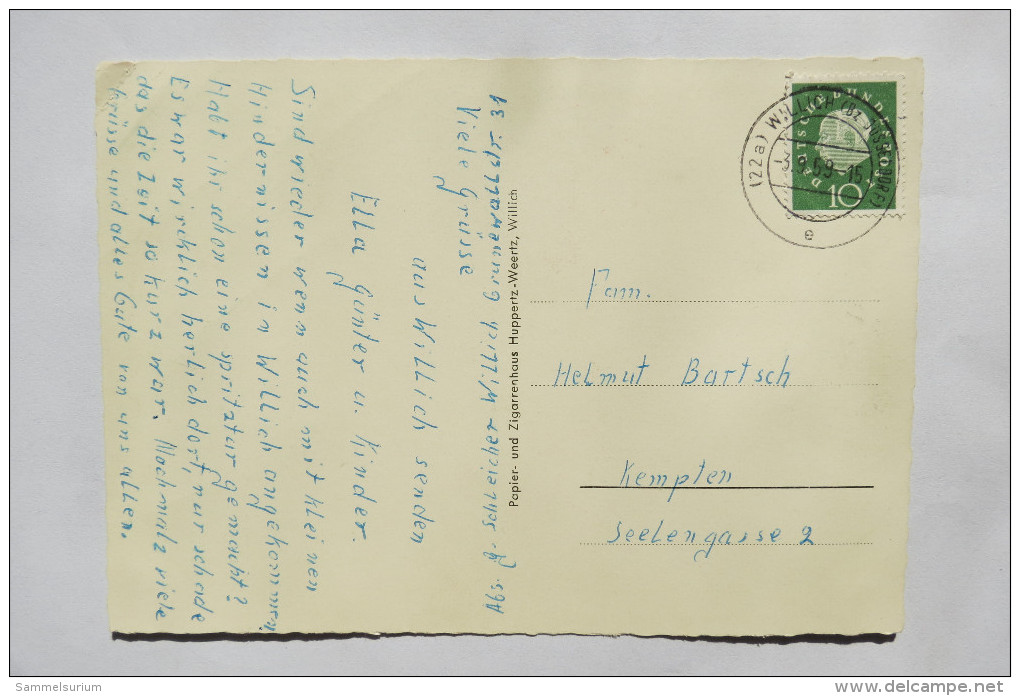 Abs. G. Schleicher Willich Grünewaldstr. 31
Viele Grüsse
aus Willich senden
Ella Günter u. Kinder.
Sind wieder wenn auch mit kleinen
Hindernissen in Willich angekommen,
Habt ihr schon eine spritztur gemacht?
Es war wirklich herlich dort, nur schade
das die Zeit so kurz war. Nochmalz viele
Grüsse und alles Gute von uns allen.
Papier- und Zigarrenhaus Huppertz-Weertz, Willich
DEUTSCHE BUNDESPOST
10
(22a) WILLICH (BZ DÜSSELDORF)
3.9.59-15
e
Fam.
Helmut Bartsch
Kempten
Seelengasse 2
© Sammelsurium
www.delcampe.net